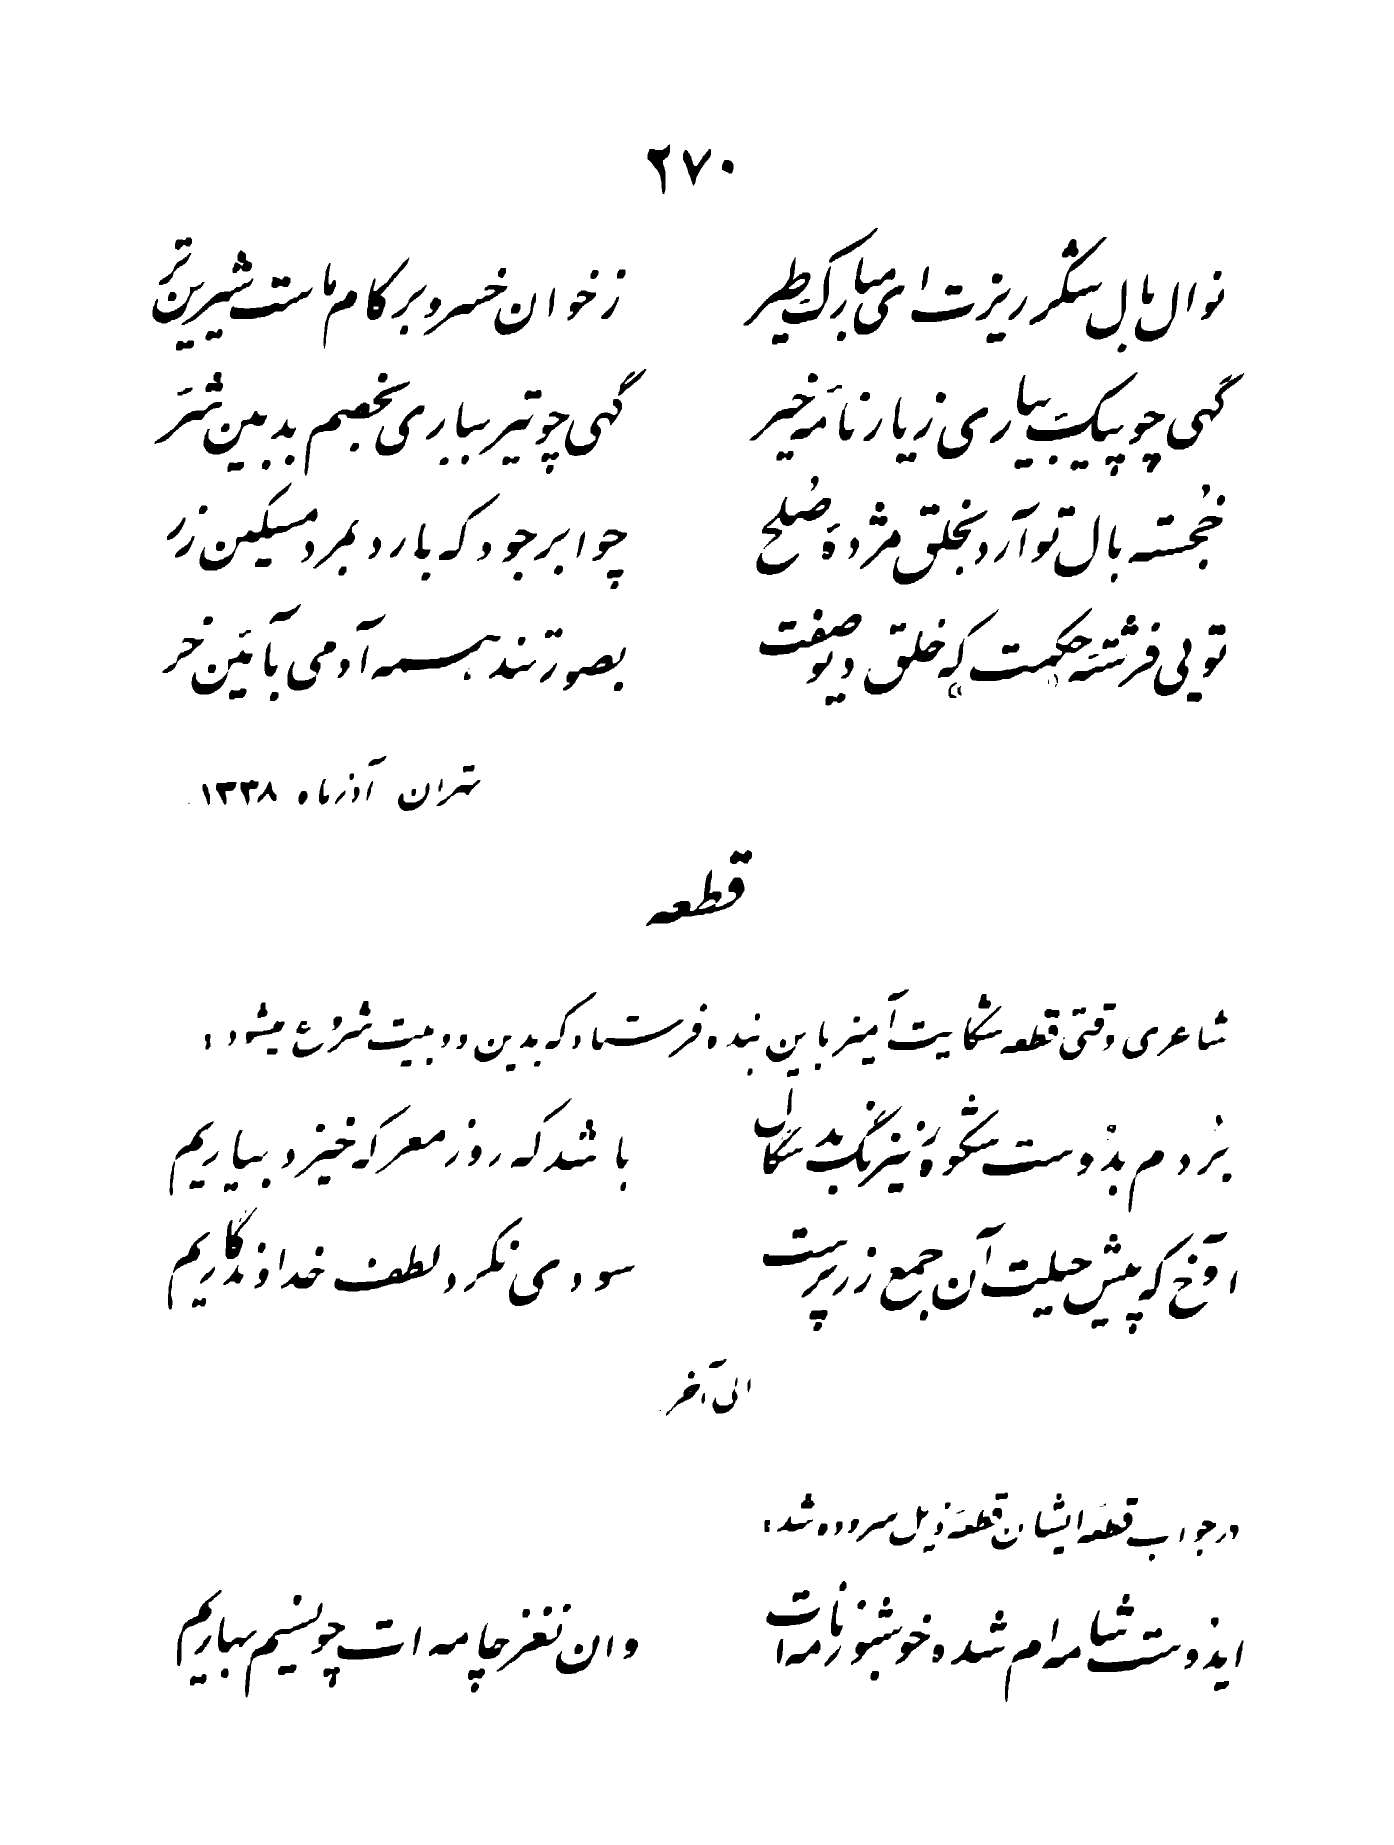 ۲۷۰
نوال بال شکرریزت ای مبارک طیر زخوان خسرو بر کام ماست شیرین‌تر
گهی چو پیک بیاری زیار نامهٔ خیر گهی چو تیر بباری بخصم بدبین شر
خجسته بال تو آرد بخلق مژدهٔ صلح چو ابر جود که بارد بمرد مسکین زر
تویی فرشتهٔ حکمت که خلق دیو صفت بصورتند همه آدمی بآئین خر
تهران آذرماه ۱۳۳۸
قطعه
شاعری وقتی قطعه شکایت آمیز باین بنده فرستاد که بدین دو بیت شروع میشود:
بردم بدوست شکوه ز نیرنگ بدسگال باشد که روز معرکه خیزد بیاریم
آوخ که پیش حیلت آن جمع زرپرست سودی نکرد لطف خداوندگاریم
الی آخر
در جواب قطعه ایشان قطعهٔ ذیل سروده شد:
ایدوست شامه‌ام شده خوشبو ز نامه‌ات وان نغز چامه‌ات چو نسیم بهاریم